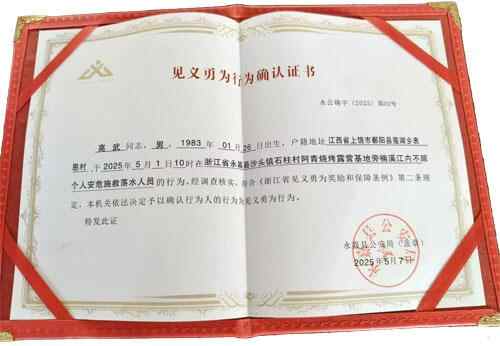 见义勇为行为确认证书
永公确字〔2025〕第02号
高武同志，男，1983年01月26日出生，户籍地址江西省上饶市鄱阳县莲湖乡表
恩村于2025年5月1日10时在浙江省永嘉县沙头镇石柱村阿青烧烤露营基地旁楠溪江内不顾
个人安危施救落水人员的行为。经调查核实，符合《浙江省见义勇为奖励和保障条例》第二条规
定，本机关依法决定予以确认行为人的行为为见义勇为行为。
特发此证
永嘉县公安局（盖章）
2025年5月7日
永嘉县公安局